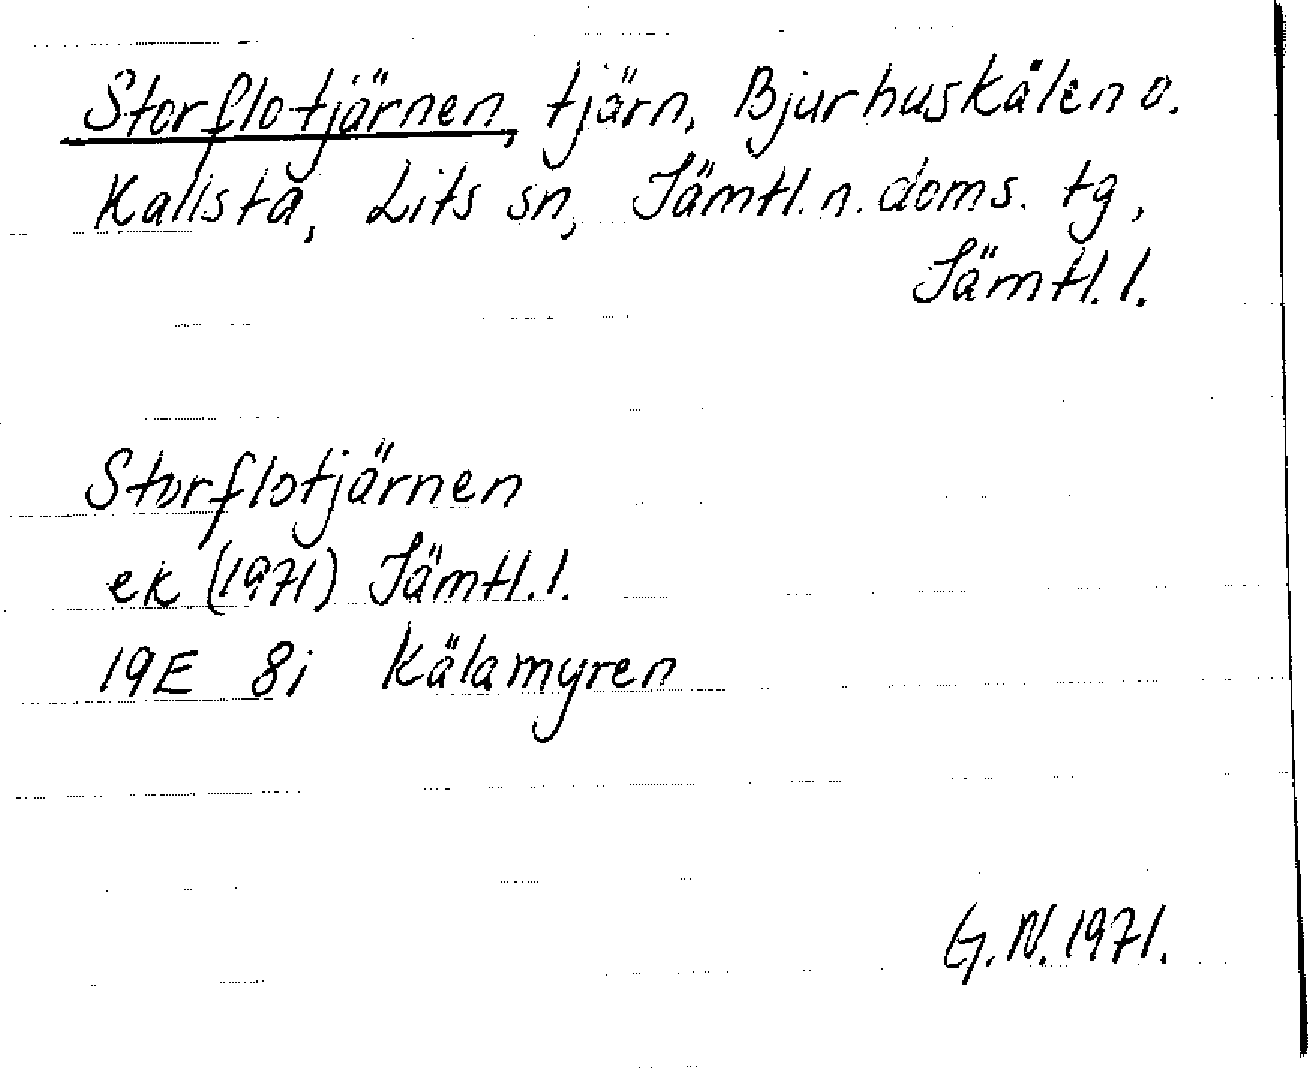 Storflotjärnen, tjärn, Bjurhuskälen o.
Kallsta, Lits sn, Jämtl. n. doms. tg,
Jämtl. l.
Storflotjärnen
ek (1971) Jämtl. l.
19E 8i Kälamyren
G. N. 1971.